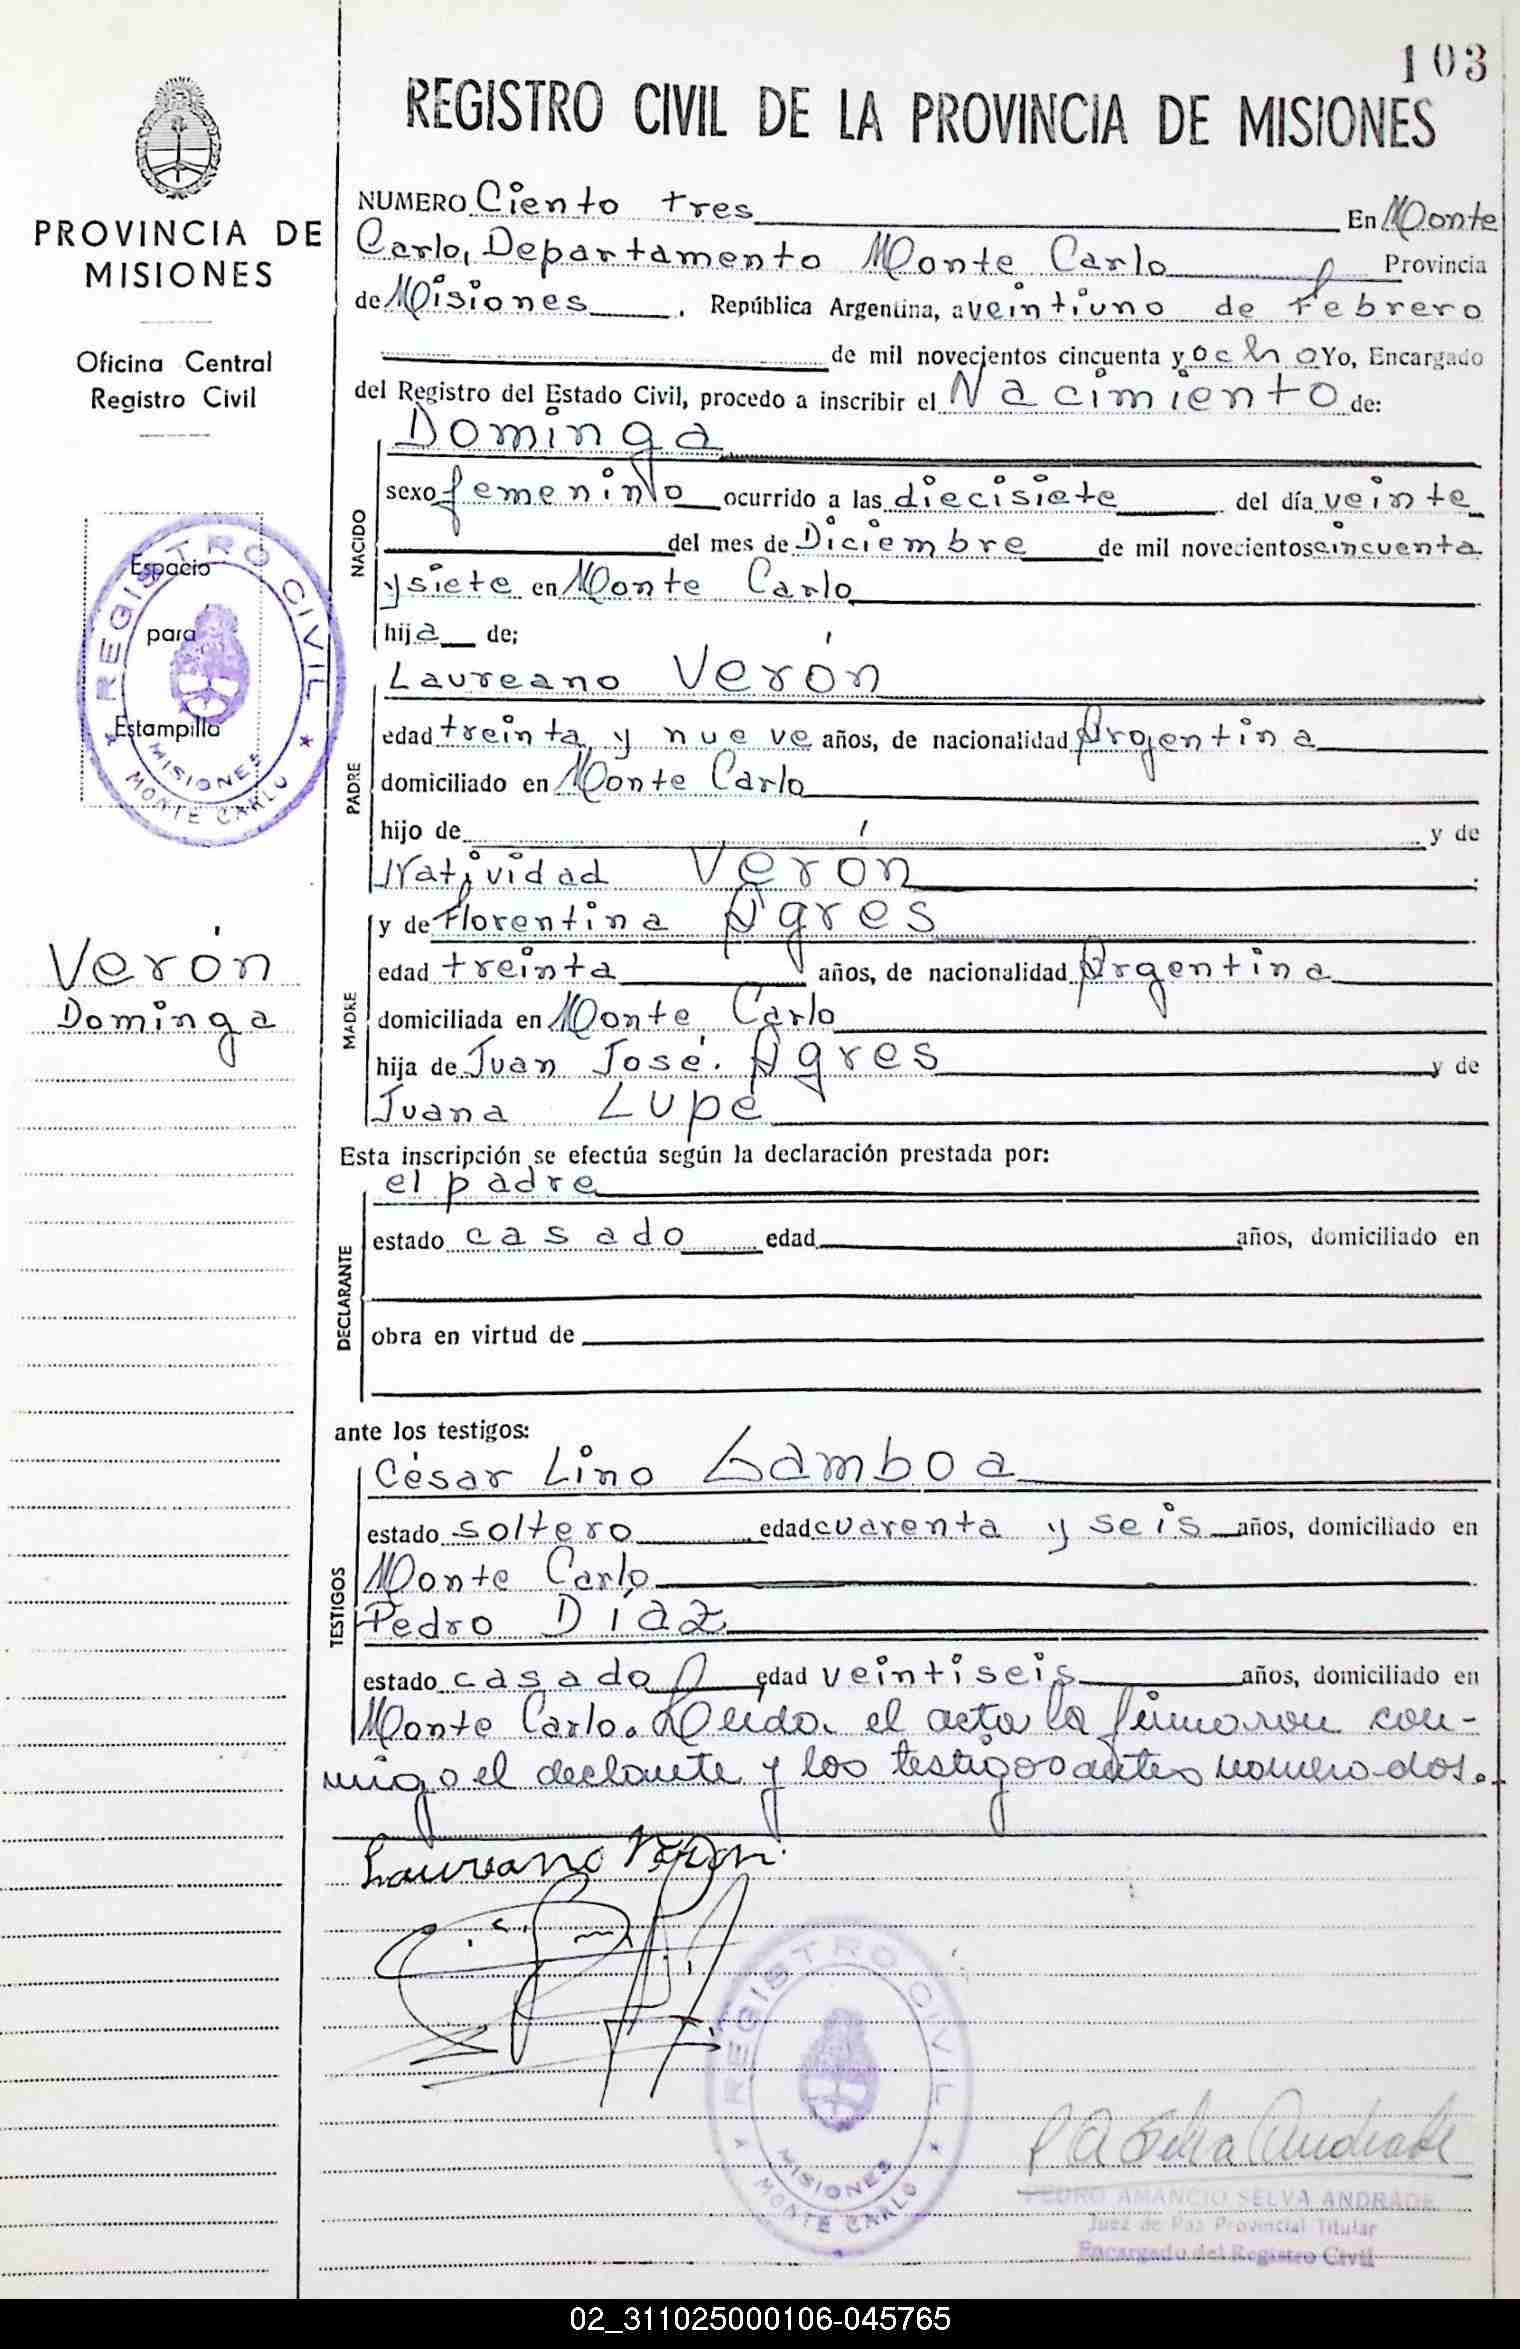 103
REGISTRO CIVIL DE LA PROVINCIA DE MISIONES
PROVINCIA DE
MISIONES
Oficina Central
Registro Civil
Espacio
para
Estampilla
REGISTRO CIVIL
MISIONES
MONTE CARLO
Verón
Dominga
NUMERO Ciento tres En Monte
Carlo, Departamento Monte Carlo Provincia
de Misiones, República Argentina, a veintiuno de Febrero
de mil novecientos cincuenta y ocho Yo, Encargado
del Registro del Estado Civil, procedo a inscribir el Nacimiento de:
NACIDO
Dominga
sexo femenino ocurrido a las diecisiete del día veinte
del mes de Diciembre de mil novecientos cincuenta
y siete en Monte Carlo
hija de;
PADRE
Laureano Verón
edad treinta y nueve años, de nacionalidad Argentina
domiciliado en Monte Carlo
hijo de y de
Natividad Verón
MADRE
y de Florentina Agres
edad treinta años, de nacionalidad Argentina
domiciliada en Monte Carlo
hija de Juan José Agres y de
Juana Lupe
Esta inscripción se efectúa según la declaración prestada por:
DECLARANTE
el padre
estado casado edad años, domiciliado en
obra en virtud de
ante los testigos:
TESTIGOS
César Lino Gamboa
estado soltero edad cuarenta y seis años, domiciliado en
Monte Carlo
Pedro Díaz
estado casado edad veintiseis años, domiciliado en
Monte Carlo. Leída el acta la firmaron con-
migo el declante y los testigos antes nomerados.
Laureano Verón
REGISTRO CIVIL
MISIONES
MONTE CARLO
P A Selva Andrade
PEDRO AMANCIO SELVA ANDRADE
Juez de Paz Provincial Titular
Encargado del Registro Civil
02_311025000106-045765